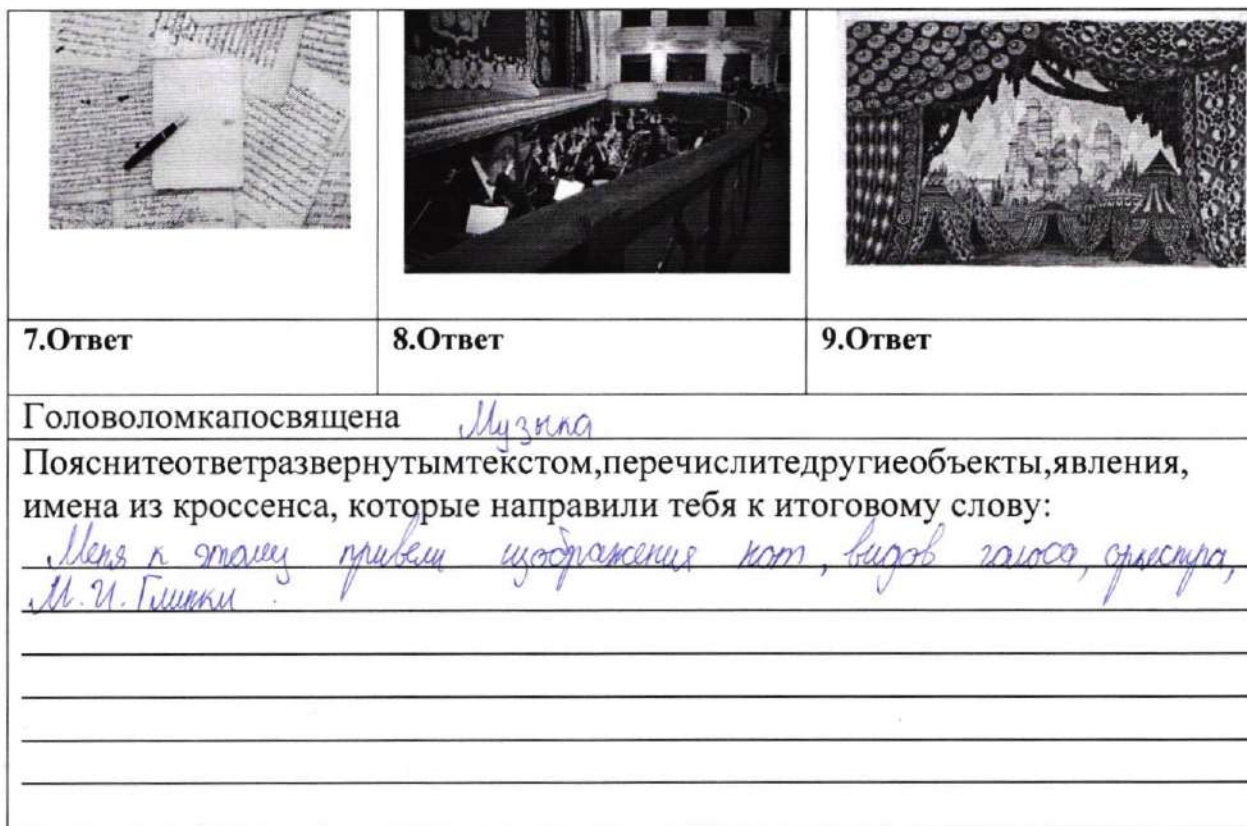 7.Ответ 8.Ответ 9.Ответ
Головоломкапосвящена Музыка
Пояснитеответразвернутымтекстом,перечислитедругиеобъекты,явления,
имена из кроссенса, которые направили тебя к итоговому слову:
Меня к этому привели изображения нот, видов голоса, оркестра,
М.И. Глинки.